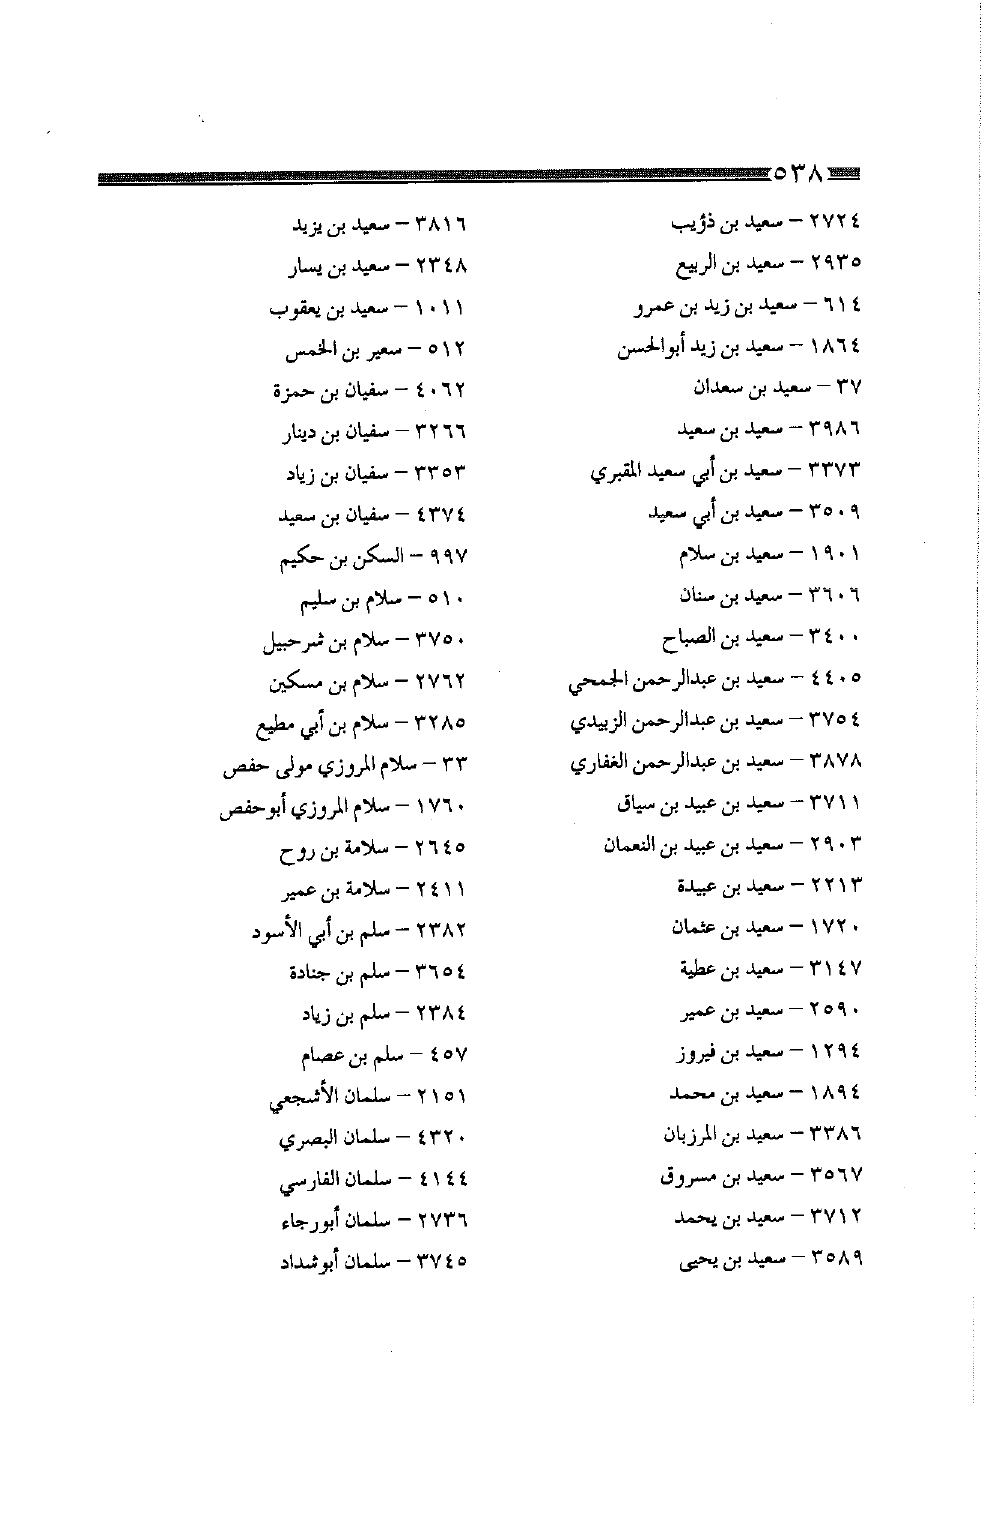 ٥٣٨
٢٧٢٤ – سعيد بن ذؤيب
٢٩٣٥ – سعيد بن الربيع
٦١٤ – سعيد بن زيد بن عمرو
١٨٦٤ – سعيد بن زيد أبوالحسن
٣٧ – سعيد بن سعدان
٣٩٨٦ – سعيد بن سعيد
٣٣٧٣ – سعيد بن أبي سعيد المقبري
٣٥٠٩ – سعيد بن أبي سعيد
١٩٠١ – سعيد بن سلام
٣٦٠٦ – سعيد بن سنان
٣٤٠٠ – سعيد بن الصباح
٤٤٠٥ – سعيد بن عبدالرحمن الجمحي
٣٧٥٤ – سعيد بن عبدالرحمن الزبيدي
٣٨٧٨ – سعيد بن عبدالرحمن الغفاري
٣٧١١ – سعيد بن عبيد بن سياق
٢٩٠٣ – سعيد بن عبيد بن النعمان
٢٢١٣ – سعيد بن عبيدة
١٧٢٠ – سعيد بن عثمان
٣١٤٧ – سعيد بن عطية
٢٥٩٠ – سعيد بن عمير
١٢٩٤ – سعيد بن فيروز
١٨٩٤ – سعيد بن محمد
٣٣٨٦ – سعيد بن المرزبان
٣٥٦٧ – سعيد بن مسروق
٣٧١٢ – سعيد بن يحمد
٣٥٨٩ – سعيد بن يحيى
٣٨١٦ – سعيد بن يزيد
٢٣٤٨ – سعيد بن يسار
١٠١١ – سعيد بن يعقوب
٥١٢ – سعير بن الخمس
٤٠٦٢ – سفيان بن حمزة
٣٢٦٦ – سفيان بن دينار
٣٣٥٣ – سفيان بن زياد
٤٣٧٤ – سفيان بن سعيد
٩٩٧ – السكن بن حكيم
٥١٠ – سلام بن سليم
٣٧٥٠ – سلام بن شرحبيل
٢٧٦٢ – سلام بن مسكين
٣٢٨٥ – سلام بن أبي مطيع
٣٣ – سلام المروزي مولى حفص
١٧٦٠ – سلام المروزي أبوحفص
٢٦٤٥ – سلامة بن روح
٢٤١١ – سلامة بن عمير
٢٣٨٢ – سلم بن أبي الأسود
٣٦٥٤ – سلم بن جنادة
٢٣٨٤ – سلم بن زياد
٤٥٧ – سلم بن عصام
٢١٥١ – سلمان الأشجعي
٤٣٢٠ – سلمان البصري
٤١٤٤ – سلمان الفارسي
٢٧٣٦ – سلمان أبورجاء
٣٧٤٥ – سلمان أبوشداد